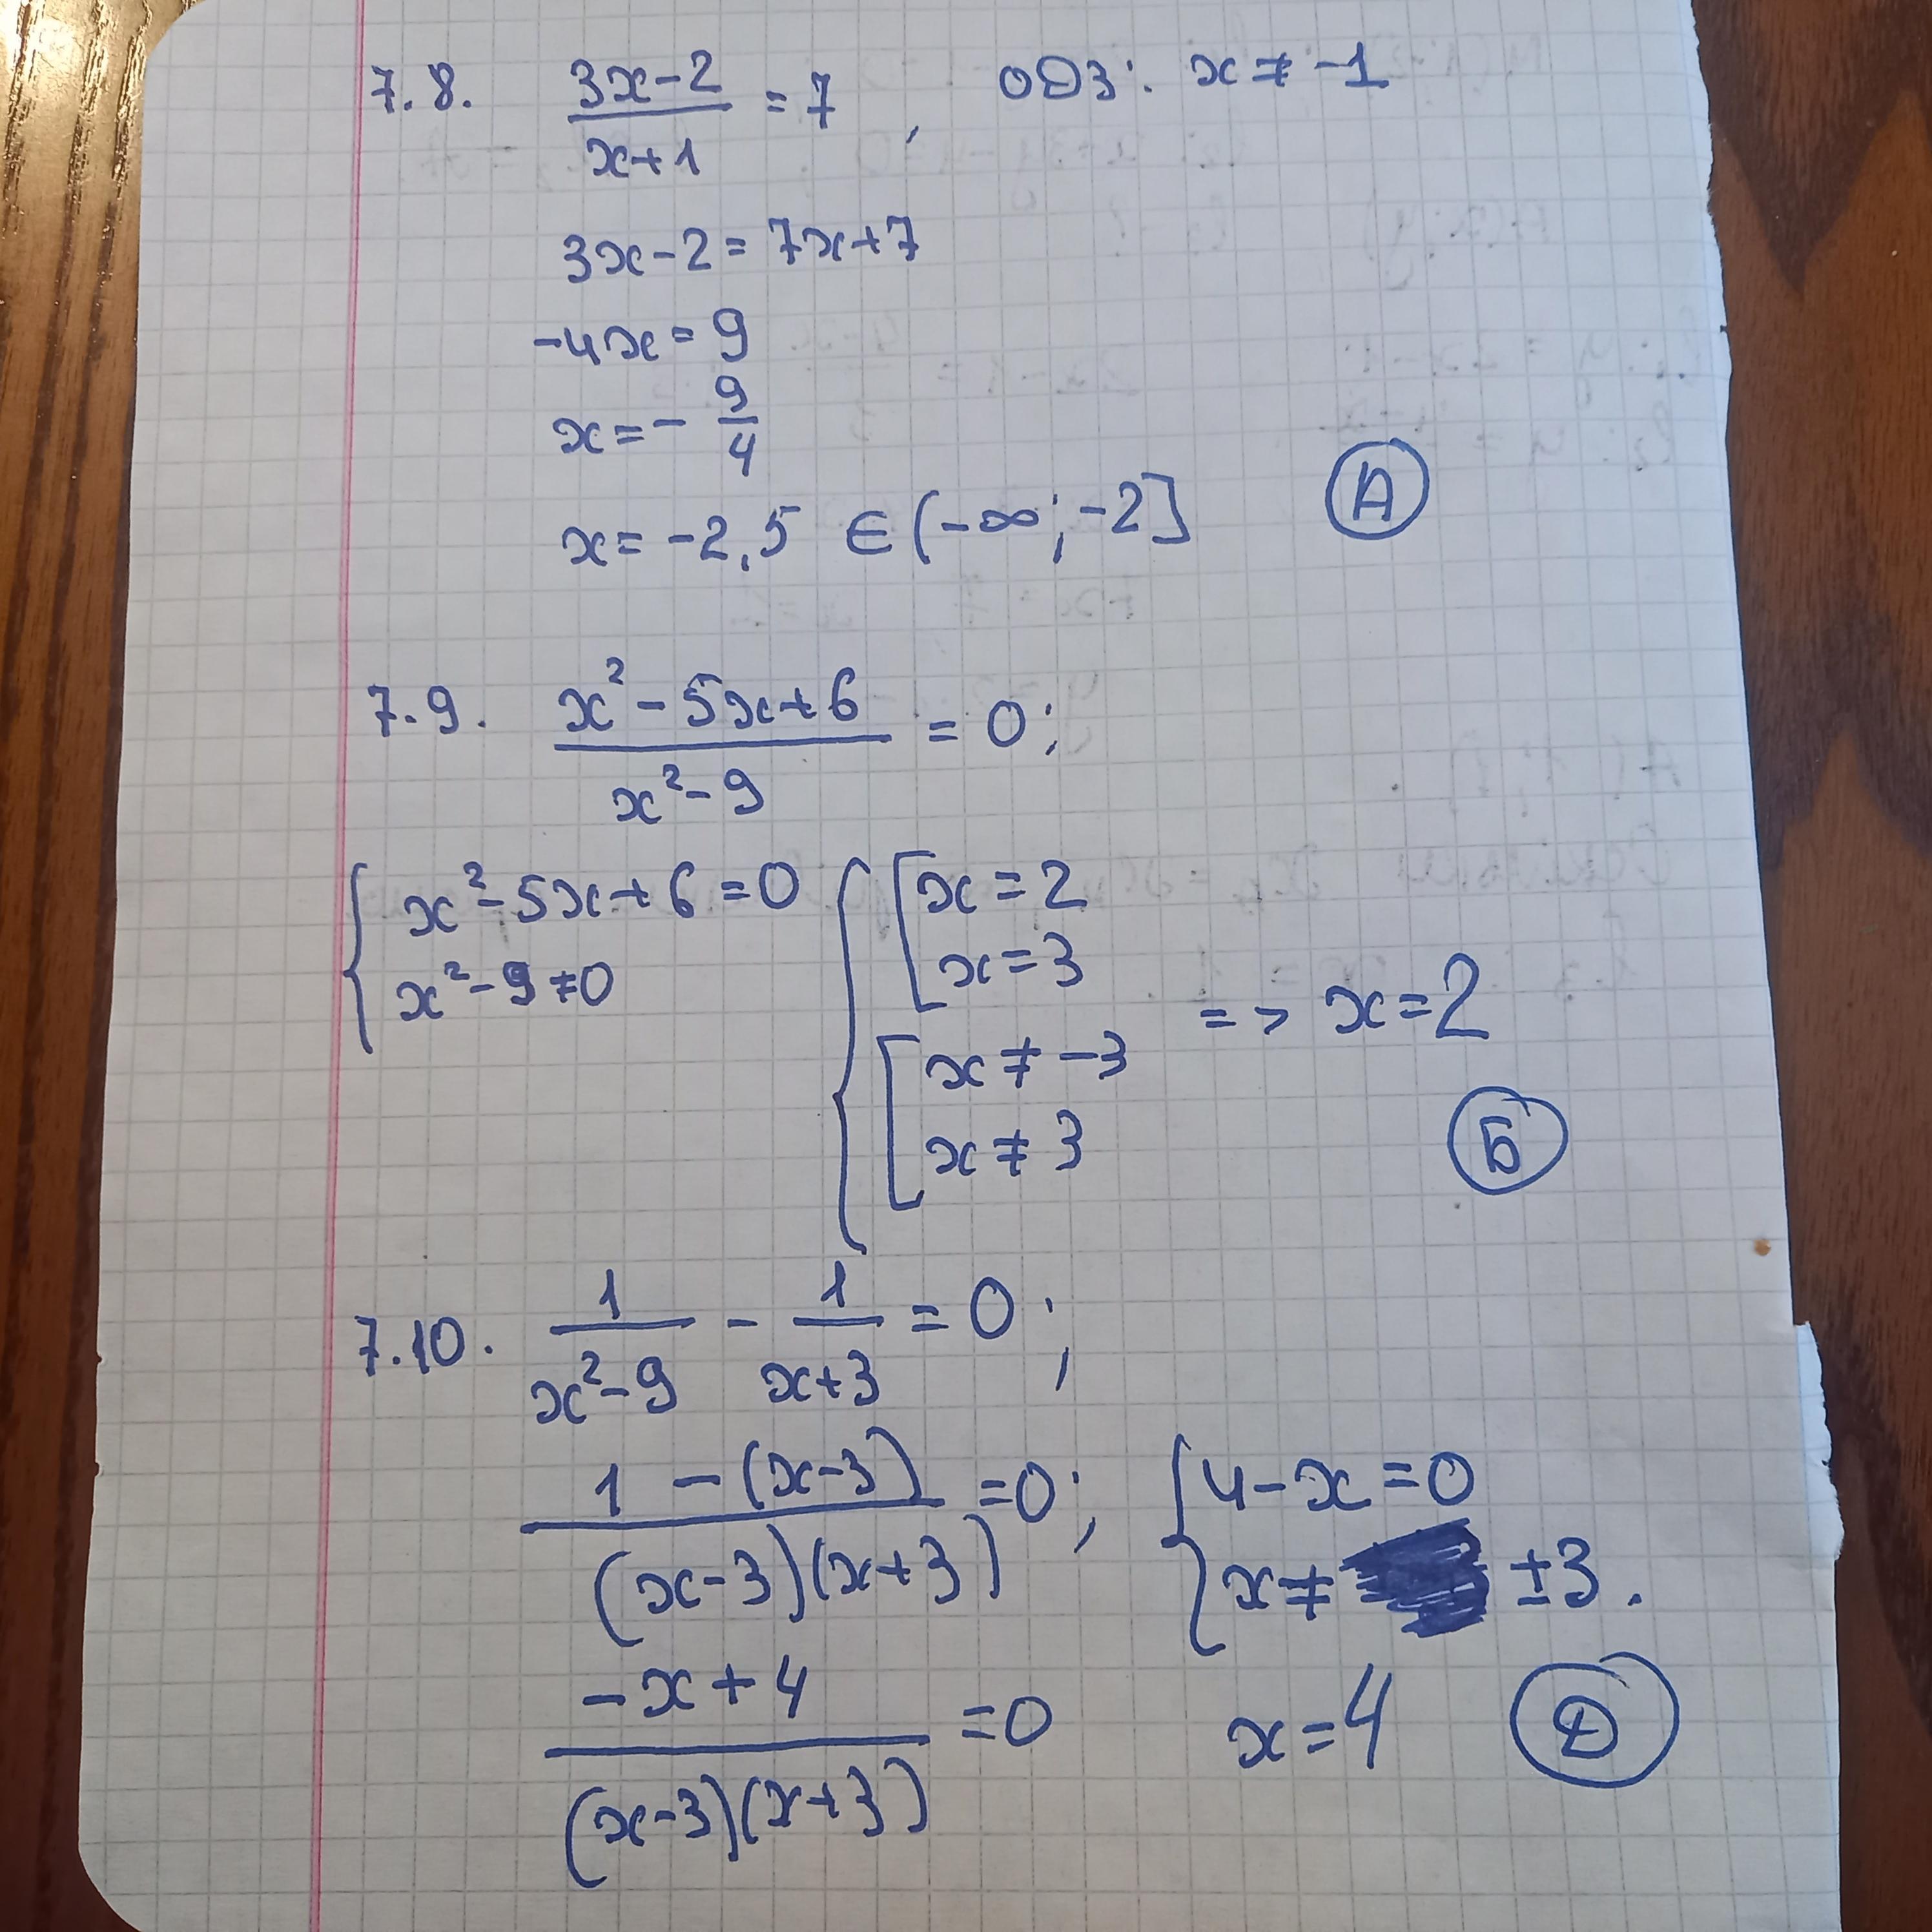 7.8. (3x-2)/(x+1) = 7, ОДЗ: x ≠ -1
3x-2 = 7x+7
-4x = 9
x = - 9/4
x = -2,5 ∈ (-∞; -2] А
7.9. (x²-5x+6)/(x²-9) = 0;
{ x²-5x+6=0 { [ x=2
x²-9≠0 x=3
=> x=2
[ x≠-3
x≠3 Б
7.10. 1/(x²-9) - 1/(x+3) = 0;
(1 - (x-3))/((x-3)(x+3)) = 0; { 4-x=0
x≠ ±3.
(-x+4)/((x-3)(x+3)) = 0 x=4 Д